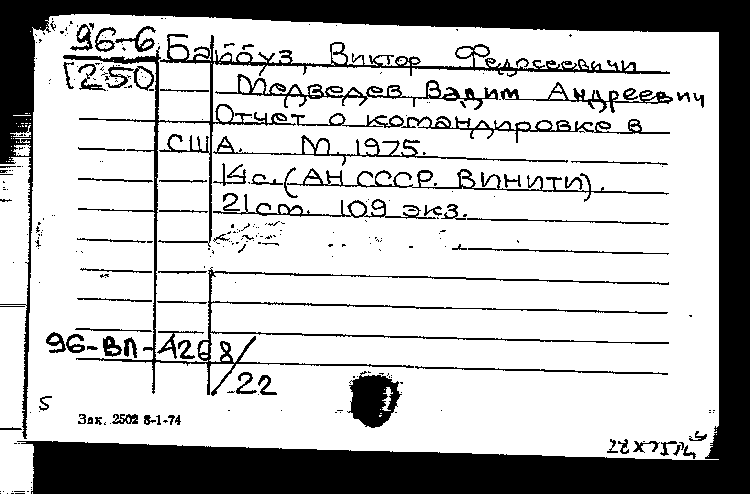 96-6 Байбуз, Виктор Федосеевичи
1250 Медведев, Вадим Андреевич
Отчет о командировке в
США. М., 1975.
14с. (АН СССР. ВИНИТИ).
21 ст. 109 экз.
96-ВЛ-4268/
/22
5
Зак. 2502 8-1-74